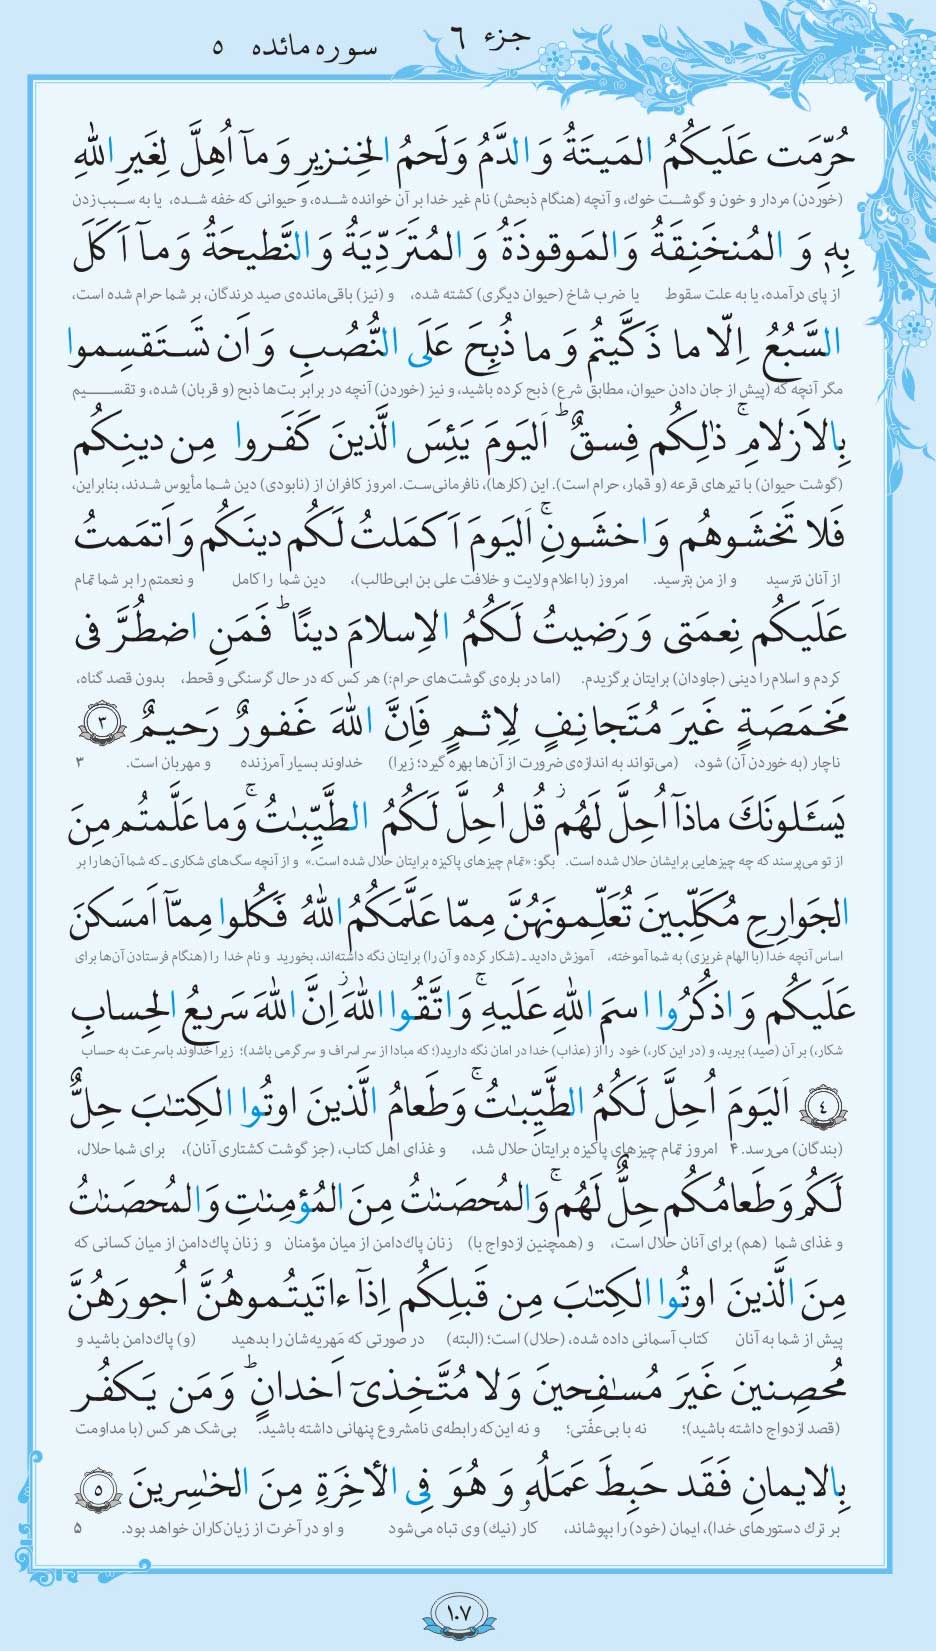 جزء ٦
سوره مائده ٥
حُرِّمَت عَلَيكُمُ المَيتَةُ وَ الدَّمُ وَ لَحمُ الخِنزيرِ وَ مآ اُهِلَّ لِغَيرِ اللّٰهِ
(خوردن) مردار و خون و گوشت خوك، و آنچه (هنگام ذبحش) نام غیر خدا بر آن خوانده شده، و حیوانی که خفه شده، یا به سبب زدن
بِهٖ وَ المُنخَنِقَةُ وَ المَوقوذَةُ وَ المُتَرَدِّيَةُ وَ النَّطيحَةُ وَ مآ اَكَلَ
از پای درآمده، یا به علت سقوط یا ضرب شاخ (حیوان دیگری) کشته شده، و (نیز) باقی‌مانده‌ی صید درندگان، بر شما حرام شده است،
السَّبُعُ اِلّا ما ذَكَّيتُم وَ ما ذُبِحَ عَلَى النُّصُبِ وَ اَن تَستَقسِموا
مگر آنچه که (پیش از جان دادن حیوان، مطابق شرع) ذبح کرده باشید، و نیز (خوردن) آنچه در برابر بت‌ها ذبح (و قربان) شده، و تقسیم
بِالاَزلامِ ۚ ذٰلِكُم فِسقٌ ۗ اَليَومَ يَئِسَ الَّذينَ كَفَروا مِن دينِكُم
(گوشت حیوان) با تیرهای قرعه (و قمار، حرام است). این (کارها)، نافرمانی‌ست. امروز کافران از (نابودی) دین شما مأیوس شدند، بنابراین،
فَلا تَخشَوهُم وَ اخشَونِ ۚ اَليَومَ اَكمَلتُ لَكُم دينَكُم وَ اَتمَمتُ
از آنان نترسید و از من بترسید. امروز (با اعلام ولایت و خلافت علی بن ابی‌طالب)، دین شما را کامل و نعمتم را بر شما تمام
عَلَيكُم نِعمَتی وَ رَضيتُ لَكُمُ الاِسلامَ دينًا ۗ فَمَنِ اضطُرَّ فی
کردم و اسلام را دینی (جاودان) برایتان برگزیدم. (اما در باره‌ی گوشت‌های حرام:) هر کس که در حال گرسنگی و قحط، بدون قصد گناه،
مَخمَصَةٍ غَيرَ مُتَجانِفٍ لِاِثمٍ فَاِنَّ اللّٰهَ غَفورٌ رَحيمٌ ٣
ناچار (به خوردن آن) شود، (می‌تواند به اندازه‌ی ضرورت از آن‌ها بهره گیرد؛ زیرا) خداوند بسیار آمرزنده و مهربان است. ٣
يَسـَٔلونَكَ ماذآ اُحِلَّ لَهُم ۖ قُل اُحِلَّ لَكُمُ الطَّيِّبٰتُ ۚ وَ ما عَلَّمتُم مِنَ
از تو می‌پرسند که چه چیزهایی برایشان حلال شده است. بگو: «تمام چیزهای پاکیزه برایتان حلال شده است.» و از آنچه سگ‌های شکاری ـ که شما آن‌ها را بر
الجَوارِحِ مُكَلِّبينَ تُعَلِّمونَهُنَّ مِمّا عَلَّمَكُمُ اللّٰهُ فَكُلوا مِمّآ اَمسَكنَ
اساس آنچه خدا (با الهام غریزی) به شما آموخته، آموزش دادید ـ (شکار کرده و آن را) برایتان نگه داشته‌اند، بخورید و نام خدا را (هنگام فرستادن آن‌ها برای
عَلَيكُم وَ اذكُرُوا اسمَ اللّٰهِ عَلَيهِ ۚ وَ اتَّقُوا اللّٰهَ ۖ اِنَّ اللّٰهَ سَريعُ الحِسابِ
شکار)، بر آن (صید) ببرید، و (در این کار،) خود را از (عذاب) خدا در امان نگه دارید(؛ که مبادا از سر اسراف و سرگرمی باشد)؛ زیرا خداوند باسرعت به حساب
٤ اَليَومَ اُحِلَّ لَكُمُ الطَّيِّبٰتُ ۚ وَ طَعامُ الَّذينَ اوتُوا الكِتٰبَ حِلٌّ
(بندگان) می‌رسد. ۴ امروز تمام چیزهای پاکیزه برایتان حلال شد، و غذای اهل کتاب، (جز گوشت کشتاری آنان)، برای شما حلال،
لَكُم وَ طَعامُكُم حِلٌّ لَهُم ۚ وَ المُحصَنٰتُ مِنَ المُؤمِنٰتِ وَ المُحصَنٰتُ
و غذای شما (هم) برای آنان حلال است، و (همچنین ازدواج با) زنان پاك‌دامن از میان مؤمنان و زنان پاك‌دامن از میان کسانی که
مِنَ الَّذينَ اوتُوا الكِتٰبَ مِن قَبلِكُم اِذآ ءاتَيتُموهُنَّ اُجورَهُنَّ
پیش از شما به آنان کتاب آسمانی داده شده، (حلال) است؛ (البته) در صورتی که مَهریه‌شان را بدهید (و) پاك‌دامن باشید و
مُحصِنينَ غَيرَ مُسٰفِحينَ وَ لا مُتَّخِذیٓ اَخدانٍ ۗ وَ مَن يَكفُر
(قصد ازدواج داشته باشید)؛ نه با بی‌عفّتی؛ و نه این‌که رابطه‌ی نامشروع پنهانی داشته باشید. بی‌شک هر کس (با مداومت
بِالايمانِ فَقَد حَبِطَ عَمَلُهٗ وَ هُوَ فِی الاٰخِرَةِ مِنَ الخٰسِرينَ ٥
بر ترك دستورهای خدا)، ایمان (خود) را بپوشاند، کار (نیك) وی تباه می‌شود و او در آخرت از زیان‌کاران خواهد بود. ۵
١٠٧